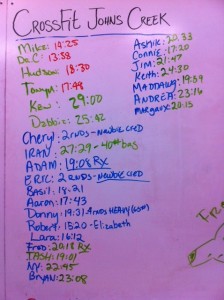 CROSSFIT JOHNS CREEK
Mike: 14:25
Dr.C: 13:58
Hudson: 18:30
Tanya: 17:48
Kew: 29:00
Debbie: 25:42
Cheryl: 2 RNDS-Newbie CHKD
IRAN: 27:29 - 40# bas
ADAM: 19:08 RX
ERIC: 2 RNDS - Newbie CHKD
Basil: 18:21
Aaron: 17:43
Donny: 19:31
Robert: 1520 - Elizabeth
Lara: 16:12
Fred: 20:18 RX
TASH: 19:01
NY: 22:45
Bryan: 23:08
ASHIK: 20:33
Connie: 17:20
Jim: 21:47
Keith: 24:30
MADDAWG: 19:59
ANDREA: 23:16
Margaux: 20:13